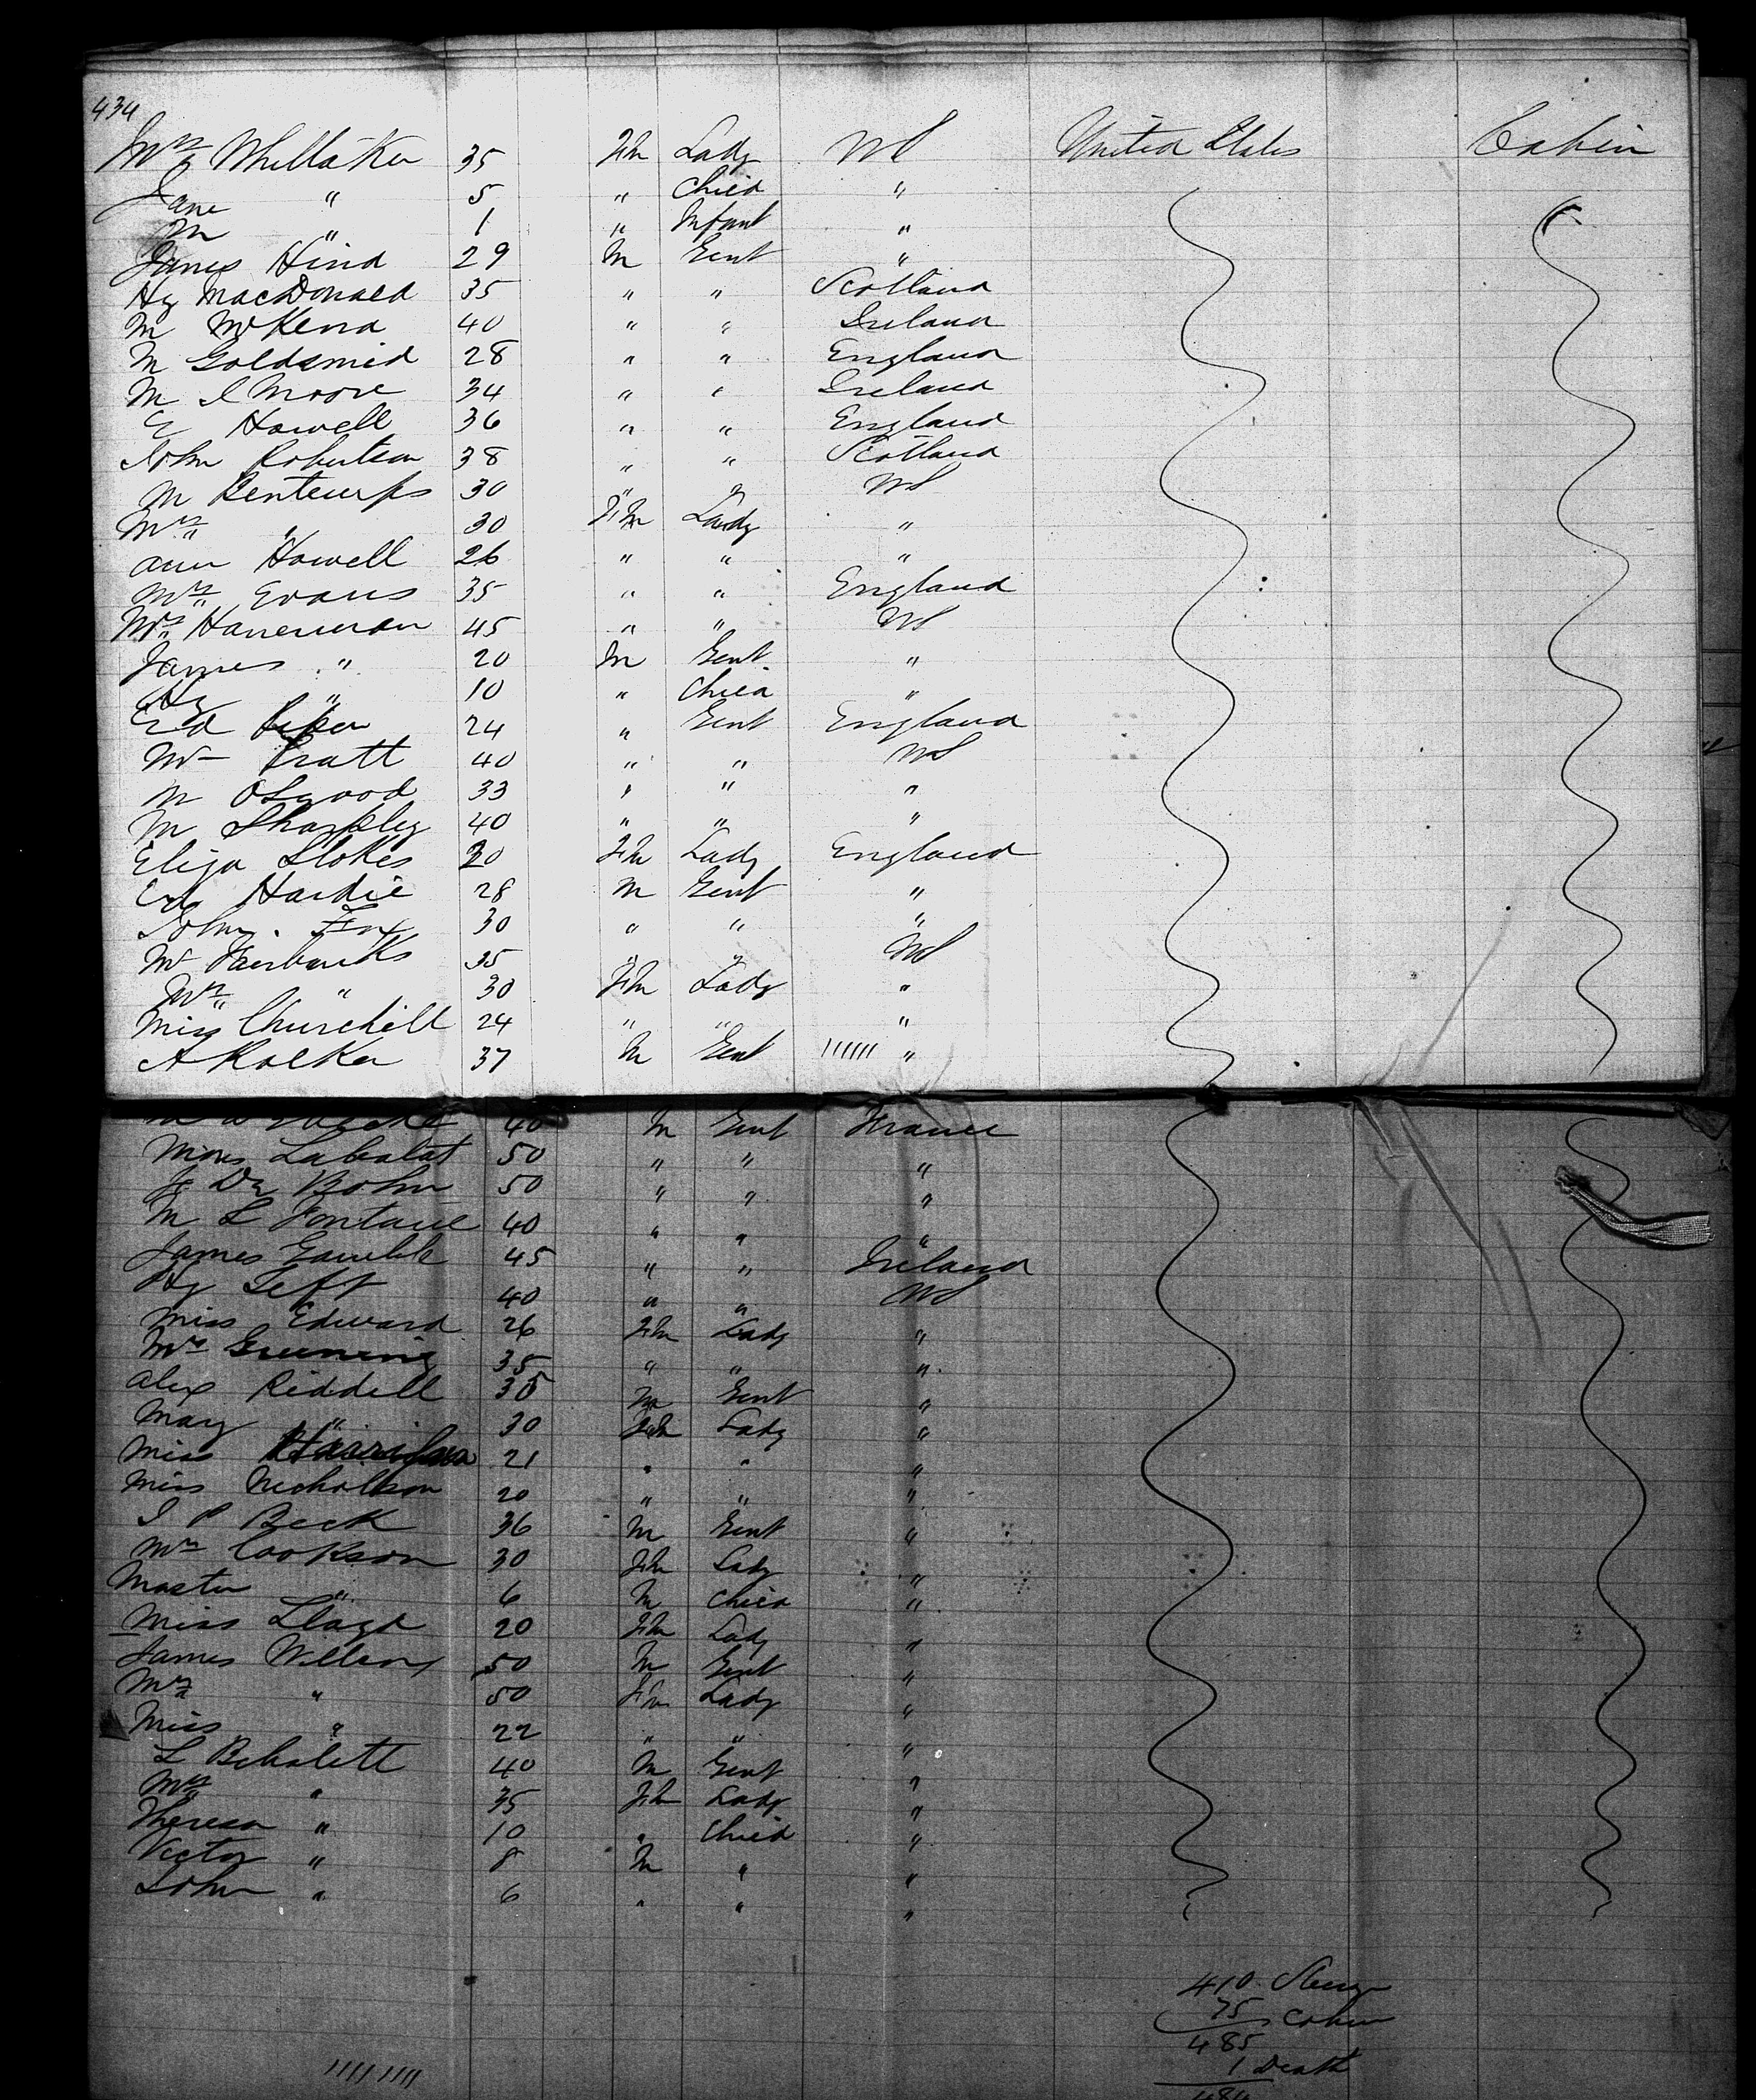 434
Mrs Whittaker 35 Fm Lady US United States Cabin
Jane " 5 " Child "
M " 1 " Infant "
James Hind 29 M Gent "
Hy MacDonald 35 " " Scotland
M McKena 40 " " Ireland
M Goldsmid 28 " " England
M I Moore 34 " " Ireland
E Howell 36 " " England
John Robertson 38 " " Scotland
M 30 " " US
Mrs " 30 Fm Lady "
Ann Howell 26 " " "
Mrs Evans 35 " " England
Mrs Haneman 45 " " US
James " 20 M Gent "
Hy " 10 " Child "
Ed 24 " Gent England
Mr Pratt 40 " " US
M Osgood 33 " " "
M Sharpley 40 " " "
Eliza Stokes 20 Fm Lady England
Hardie 28 M Gent "
John Fox 30 " " "
Mr Fairbanks 35 " " US
Mrs " 30 Fm Lady "
Miss Churchill 24 " " "
A 37 M Gent "
40 M Gent France
Mons Labalat 50 " " "
De Bohn 50 " " "
M L Fontane 40 " " "
James 45 " " Ireland
Hy Teft 40 " " US
Miss Edward 26 Fm Lady "
Mrs Greening 35 " " "
Alex Riddell 35 M Gent "
Mary " 30 Fm Lady "
Miss 21 " " "
Miss Nicholson 20 " " "
I P Beck 36 M Gent "
Mrs Cookson 30 Fm Lady "
Master " 6 M Child "
Miss Lloyd 20 Fm Lady "
James 50 M Gent "
Mrs " 50 Fm Lady "
Miss " 22 " " "
L 40 M Gent "
Mrs " 35 Fm Lady "
Theresa " 10 " Child "
Victor " 8 M " "
John " 6 " " "
410 Steerge
75 Cabin
485
1 Death
484